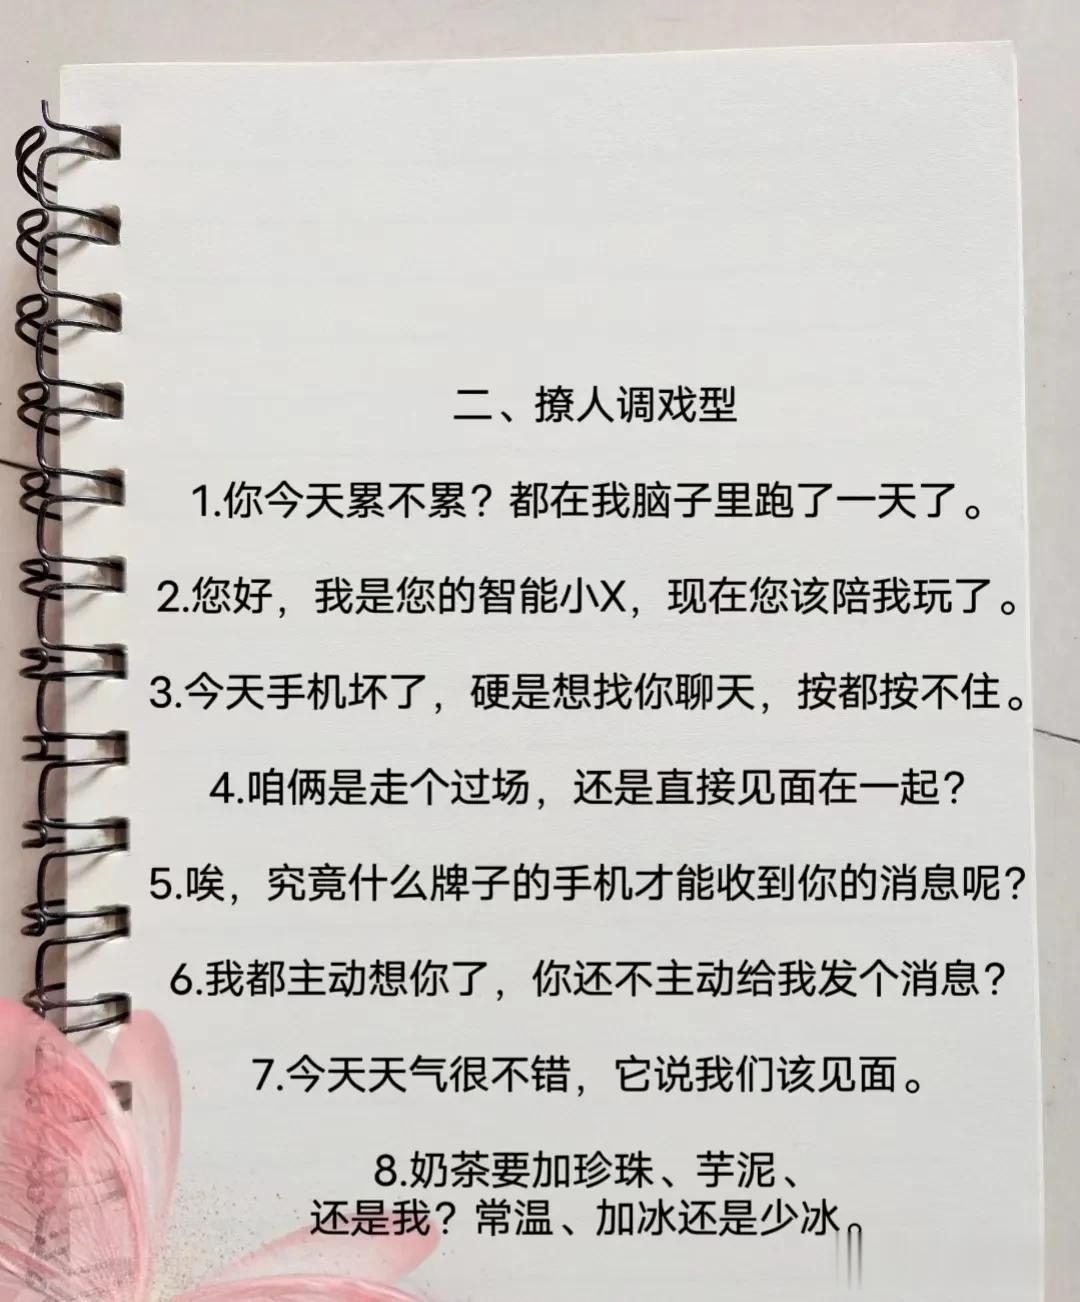 二、撩人调戏型
1.你今天累不累？都在我脑子里跑了一天了。
2.您好，我是您的智能小X，现在您该陪我玩了。
3.今天手机坏了，硬是想找你聊天，按都按不住。
4.咱俩是走个过场，还是直接见面在一起？
5.唉，究竟什么牌子的手机才能收到你的消息呢？
6.我都主动想你了，你还不主动给我发个消息？
7.今天天气很不错，它说我们该见面。
8.奶茶要加珍珠、芋泥、
还是我？常温、加冰还是少冰。